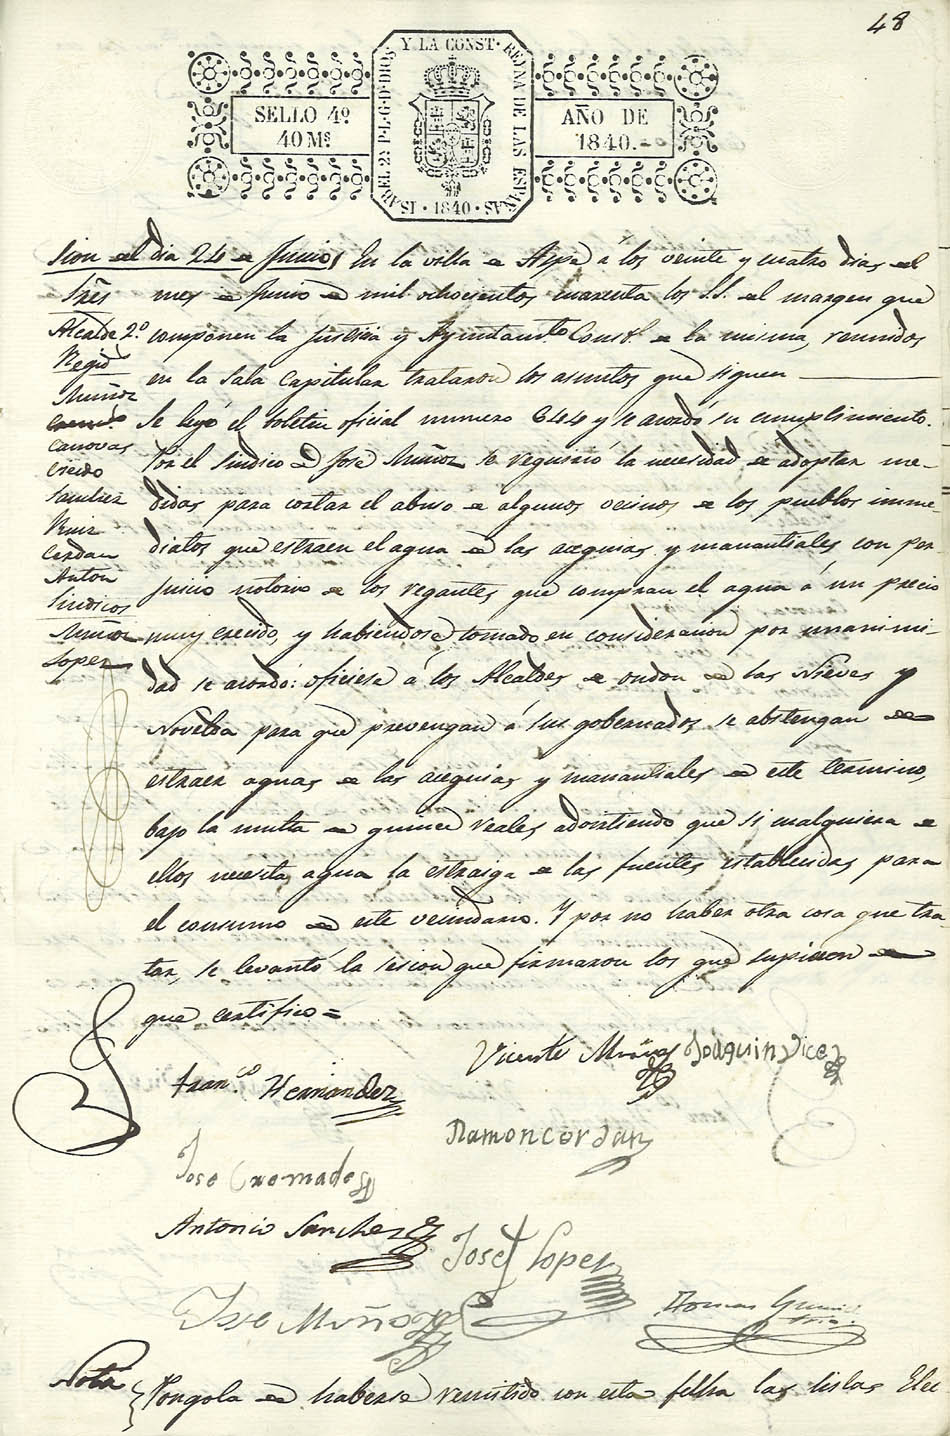 48
SELLO 4º
40 Mˢ
ISABEL 2ª P.L.G.D.DIOS Y LA CONST. REYNA DE LAS ESPAÑAS
· 1840 ·
AÑO DE
1840.
sion del dia 24 de Junio
Sres
Alcalde 2º
Regid
Muñoz
Canovas
Sanchez
Ruiz
Cerdan
Anton
Sindicos
Muñoz
Lopez
En la villa de Aspe á los veinte y cuatro dias del
mes de Junio de mil ochocientos cuarenta los S.S. del margen que
componen la Justicia y Ayuntamto Constl. de la misma, reunidos
en la Sala Capitular trataron los asuntos que siguen
Se leyó el boletin oficial numero 644 y se acordó su cumplimiento.
Por el Sindico D. Jose Muñoz se requirió la necesidad de adoptar me-
didas para cortar el abuso de algunos vecinos de los pueblos imme
diatos que estraen el agua de las acequias y manantiales con per
juicio notorio de los regantes que compran el agua á un precio
muy crecido, y habiendose tomado en consideracion por unanimi-
dad se acordó: oficiese á los Alcaldes de ondon de las Nieves y
Novelda para que prevengan á sus gobernados se abstengan de
estraer aguas de las acequias y manantiales de este termino,
bajo la multa de quince reales advirtiendo que si cualquiera de
ellos necesita agua la estraiga de las fuentes establecidas para
el consumo de este vecindario. Y por no haber otra cosa que tra-
tar, se levantó la sesion que firmaron los que supieron de
que certifico =
Vicente Muñoz
Joaquin Vicez
Franco Hernandez
Ramon cerdan
Jose Cremades
Antonio Sanchez
Jose Lopez
Jose Muñoz
Nota
Pongola de haberse remitido con esta fecha las listas Elec